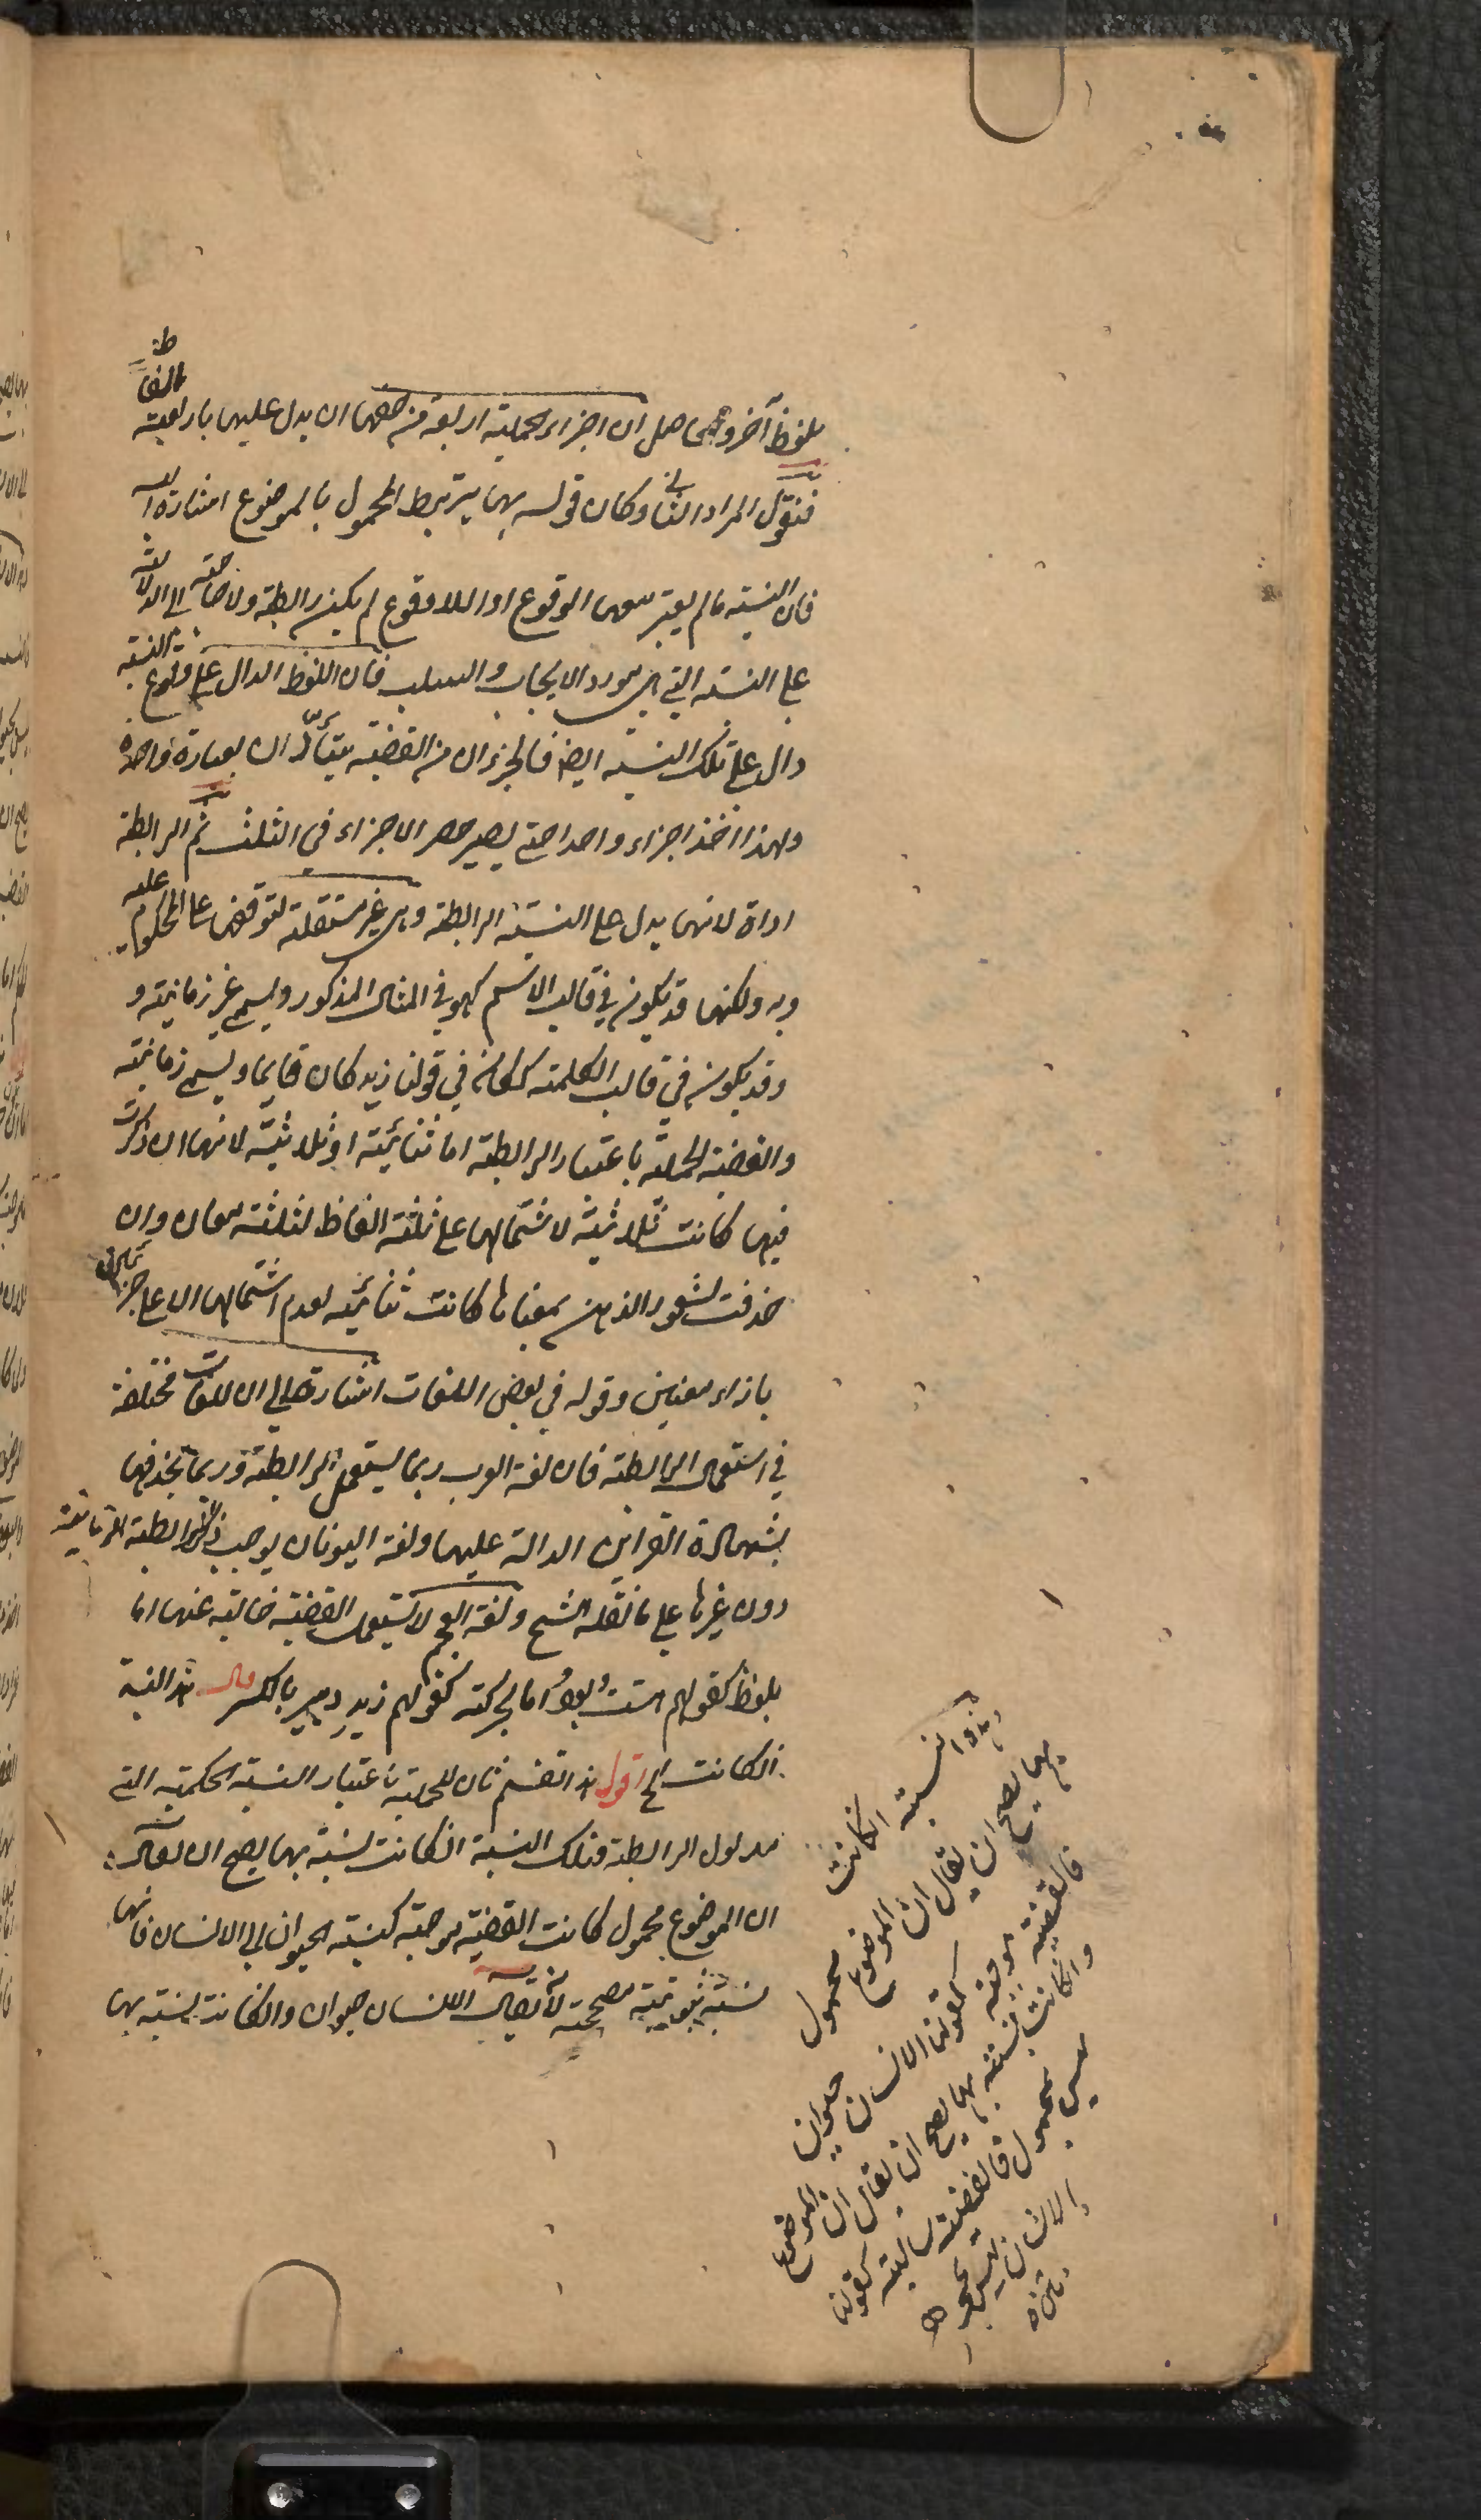 بلفظ آخر وحاصل ان اجزاء الحملية اربعة من حقها ان يدل عليها باربعة
الفاظ
فنقول المراد الثاني وكان قوله بها يرتبط المحمول بالموضوع اشارة اليه
فان النسبة ما لم يعتبر معها الوقوع او اللاوقوع لم يكن رابطة ولا حاجة الى الدلالة
على النسبة التي هي مورد الايجاب والسلب فان اللفظ الدال على وقوع النسبة
دال على تلك النسبة ايضا فالجزءان من القضية يتأديان بعبارة واحدة
ولهذا اخذ اجزاء واحدا حتى يصير حصر الاجزاء في الثلث ثم الرابطة
اداة لانها يدل على النسبة الرابطة وهي غير مستقلة لتوقفها على المحكوم عليه
وبه ولكنها قد يكون في قالب الاسم كهو في المثال المذكور ويسمى غير زمانية و
وقد يكون في قالب الكلمة ككان في قولنا زيد كان قايما ويسمى زمانية
والقضية الحملية باعتبار الرابطة اما ثنائية او ثلاثية لانها ان ذكرت
فيها كانت ثلاثية لاشتمالها على ثلثة الفاظ لثلثة معان وان
حذفت لشعور الذهن بمعناها كانت ثنائية لعدم اشتمالها الا على جزئين
بازاء معنيين وقوله في بعض اللغات اشارة الى ان اللغات مختلفة
في استعمال الرابطة فان لغة العرب ربما يستعمل الرابطة وربما يحذفها
بشهادة القراين الدالة عليها ولغة اليونان يوجب ذكر الرابطة الزمانية
دون غيرها على ما نقله الشيخ ولغة العجم لا يستعمل القضية خالية عنها اما
بلفظ كقولهم هست وبود واما بحركة كقولهم زيد دبير بالكسر قال هذه النسبة
ان كانت الخ اقول هذا تقسيم ثان للحملية باعتبار النسبة الحكمية التي
مدلول الرابطة فتلك النسبة ان كانت نسبة بها يصح ان يقال
ان الموضوع محمول كانت القضية موجبة كنسبة الحيوان الى الانسان فانها
نسبة ثبوتية مصححة لان يقال الانسان حيوان وان كانت نسبة بها
وهذه النسبة ان كانت
بها يصح ان يقال ان الموضوع محمول
فالقضية موجبة كقولنا الانسان حيوان
وان كانت نسبة بها يصح ان يقال ان الموضوع
ليس بمحمول فالقضية سالبة كقولنا
الانسان ليس بحجر